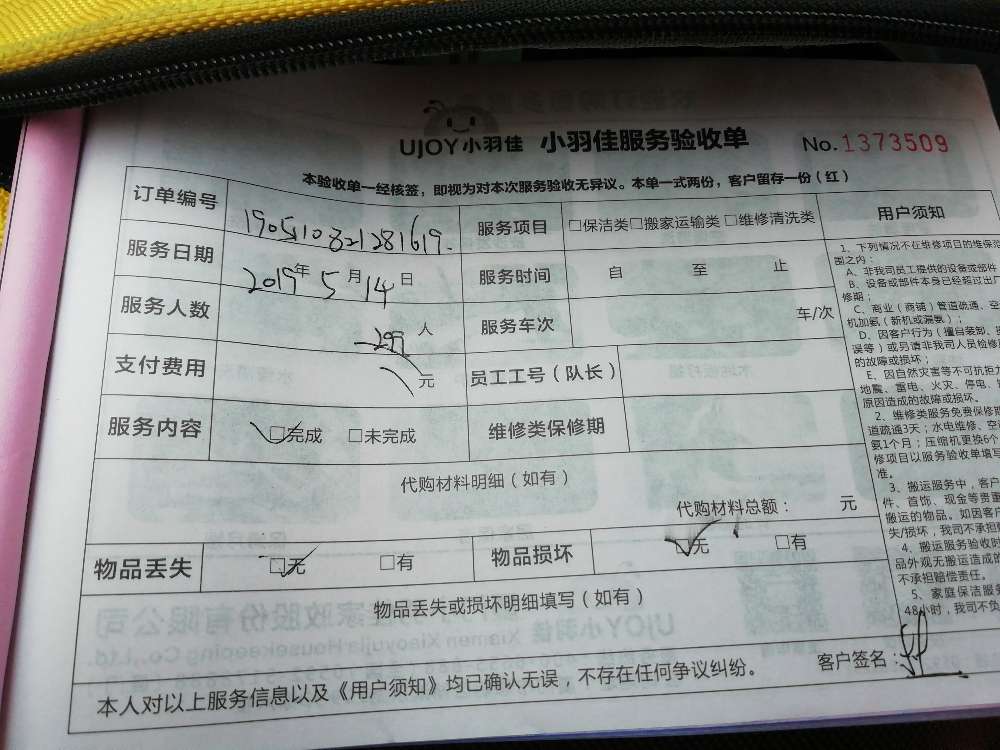 UJOY小羽佳 小羽佳服务验收单 No.1373509
本验收单一经核签，即视为对本次服务验收无异议。本单一式两份，客户留存一份（红）
订单编号 190510821281619. 服务项目 □保洁类□搬家运输类□维修清洗类
服务日期 2019年5月14日 服务时间 自 至 止
服务人数 人 服务车次 车/次
支付费用 299 元 员工工号（队长）
服务内容 □完成 □未完成 维修类保修期
代购材料明细（如有）
代购材料总额： 元
物品丢失 □无 □有 物品损坏 □无 □有
物品丢失或损坏明细填写（如有）
本人对以上服务信息以及《用户须知》均已确认无误，不存在任何争议纠纷。 客户签名：
用户须知
1、下列情况不在维修项目的维保范
围之内：
A、非我司员工提供的设备或部件
B、设备或部件本身已经超过出厂
修期；
C、商业（商铺）管道疏通、空
机加氨（新机或漏氨）；
D、因客户行为（擅自装卸、
误等）或另请非我司人员检修
的故障或损坏；
E、因自然灾害等不可抗拒力
地震、雷电、火灾、停电、
原因造成的故障或损坏。
2、维修类服务免费保修期
道疏通3天；水电维修、空
氨1个月；压缩机更换6个
修项目以服务验收单填写
准。
3、搬运服务中，客户
件、首饰、现金等贵重
搬运的物品。如因客户
失/损坏，我司不承担
4、搬运服务验收时
品外观无搬运造成的
不承担赔偿责任。
5、家庭保洁服务
48小时，我司不负